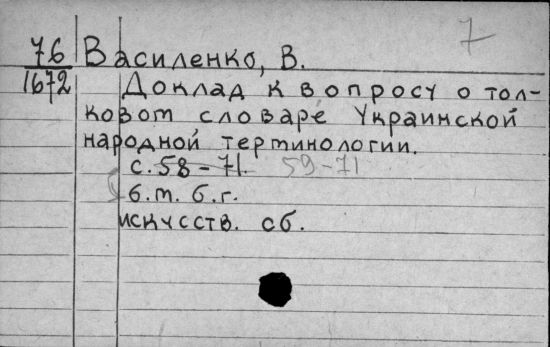 7
76 Василенко, В.
1672 Доклад к вопросу о тол-
ковом словаре Украинской
народной терминологии.
с. 58-71. 59-71
б.м. б.г.
искусств. сб.